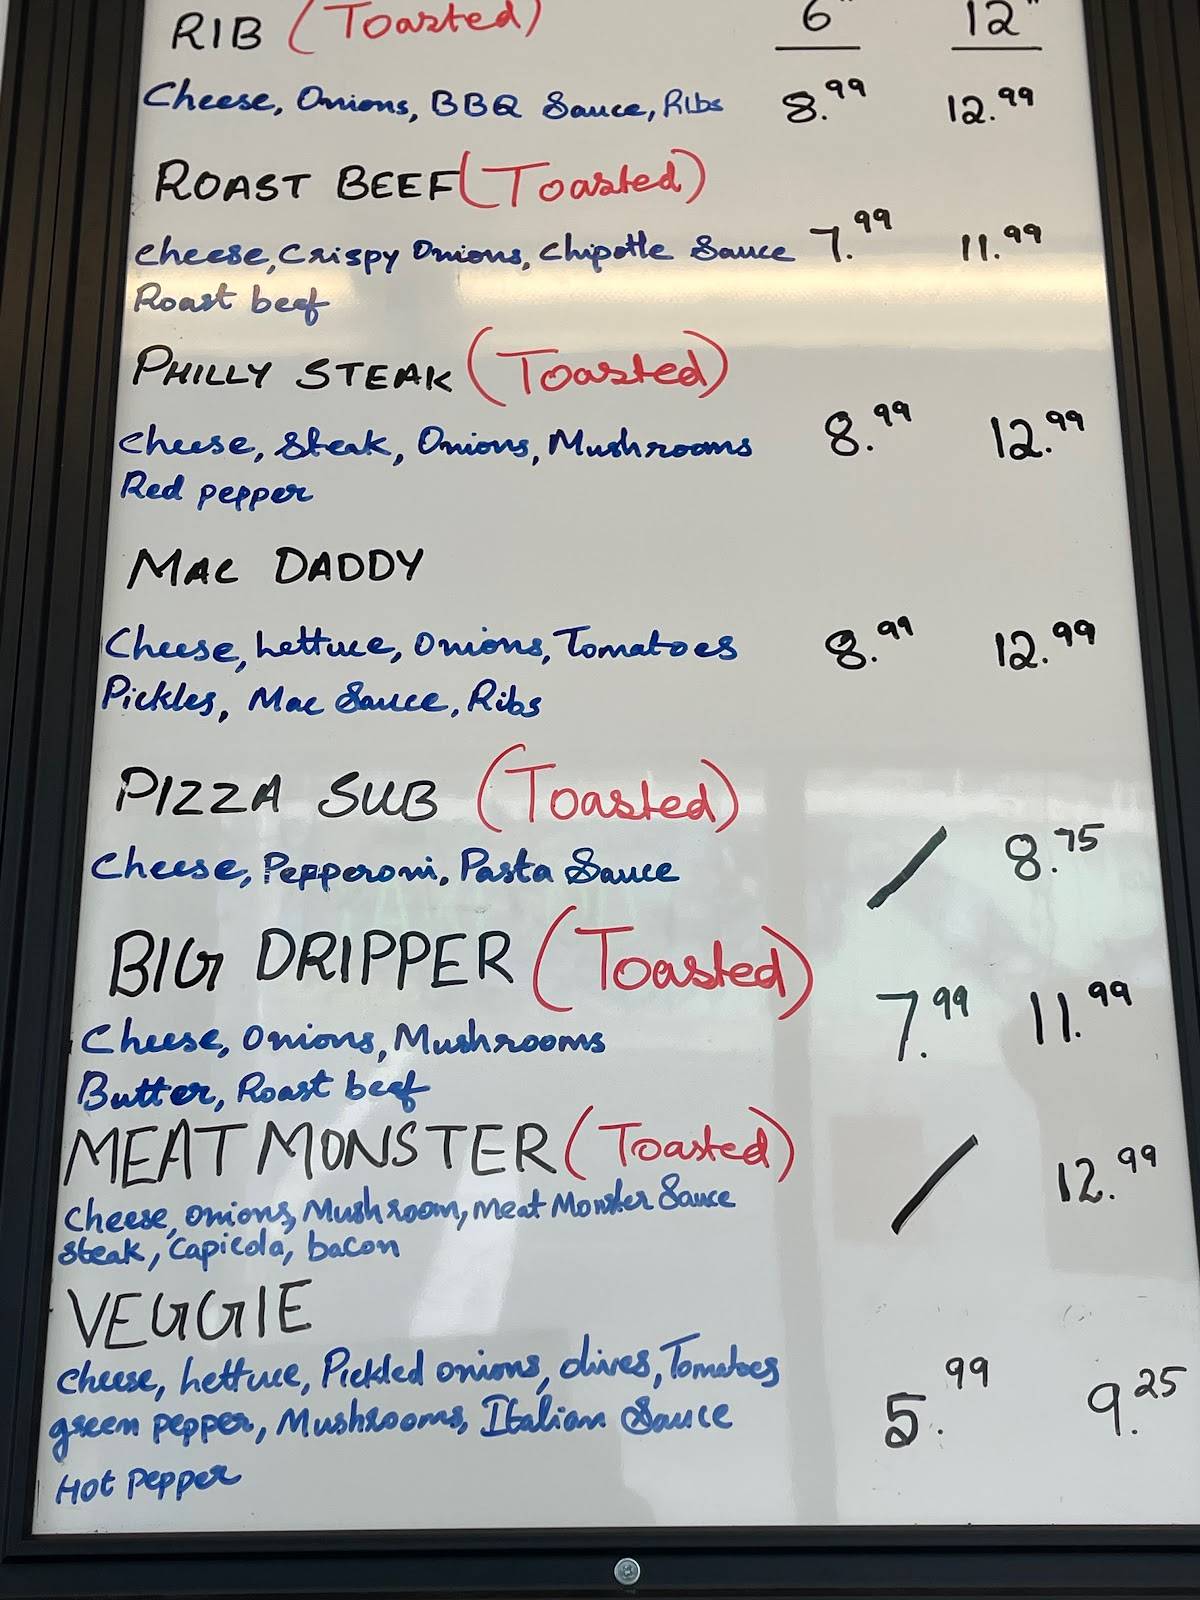 RIB (Toasted) 6" 12"
Cheese, Onions, BBQ Sauce, Ribs 8.99 12.99
ROAST BEEF (Toasted)
Cheese, Crispy Onions, Chipotle Sauce 7.99 11.99
Roast beef
PHILLY STEAK (Toasted)
Cheese, Steak, Onions, Mushrooms 8.99 12.99
Red pepper
MAC DADDY
Cheese, Lettuce, Onions, Tomatoes 8.99 12.99
Pickles, Mac Sauce, Ribs
PIZZA SUB (Toasted)
Cheese, Pepperoni, Pasta Sauce / 8.75
BIG DRIPPER (Toasted)
Cheese, Onions, Mushrooms 7.99 11.99
Butter, Roast beef
MEAT MONSTER (Toasted) / 12.99
Cheese, Onions, Mushroom, Meat Monster Sauce
Steak, Capicola, bacon
VEGGIE
Cheese, Lettuce, Pickled onions, olives, Tomatoes
green pepper, Mushrooms, Italian Sauce 5.99 9.25
Hot Pepper